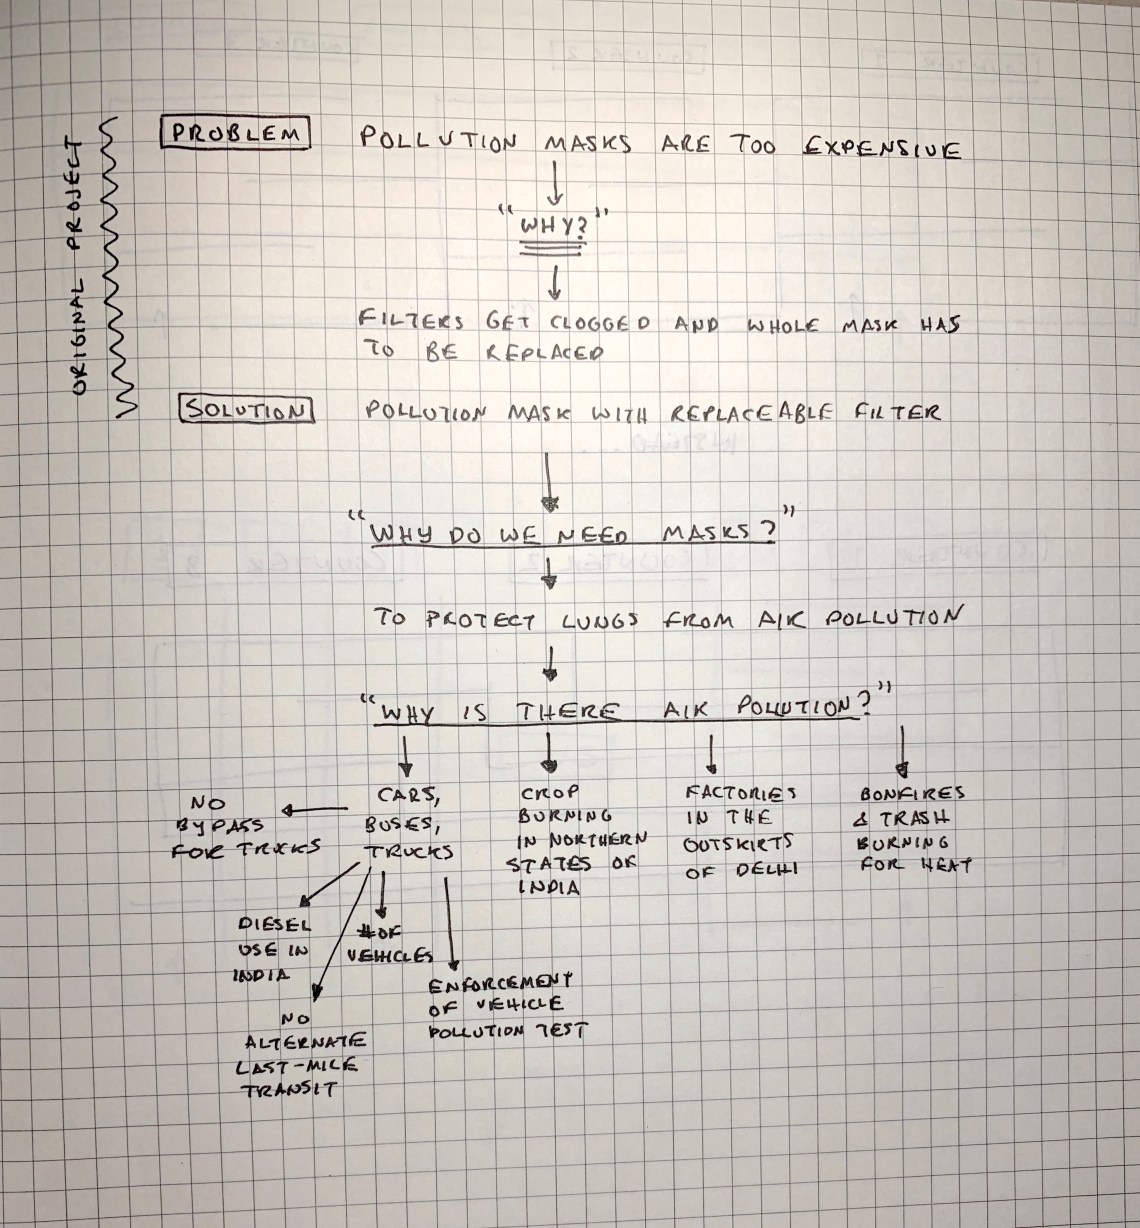 ORIGINAL PROJECT
PROBLEM POLLUTION MASKS ARE TOO EXPENSIVE
"WHY?"
FILTERS GET CLOGGED AND WHOLE MASK HAS
TO BE REPLACED
SOLUTION POLLUTION MASK WITH REPLACEABLE FILTER
INSTEAD...
"WHY DO WE NEED MASKS?"
COUNTER 2
COUNTER 3
TO PROTECT LUNGS FROM AIR POLLUTION
"WHY IS THERE AIR POLLUTION?"
CARS,
BUSES,
TRUCKS
CROP
BURNING
IN NORTHERN
STATES OF
INDIA
FACTORIES
IN THE
OUTSKIRTS
OF DELHI
BONFIRES
& TRASH
BURNING
FOR HEAT
NO
BYPASS
FOR TRUCKS
DIESEL
USE IN
INDIA
# OF
VEHICLES
NO
ALTERNATE
LAST-MILE
TRANSIT
ENFORCEMENT
OF VEHICLE
POLLUTION TEST